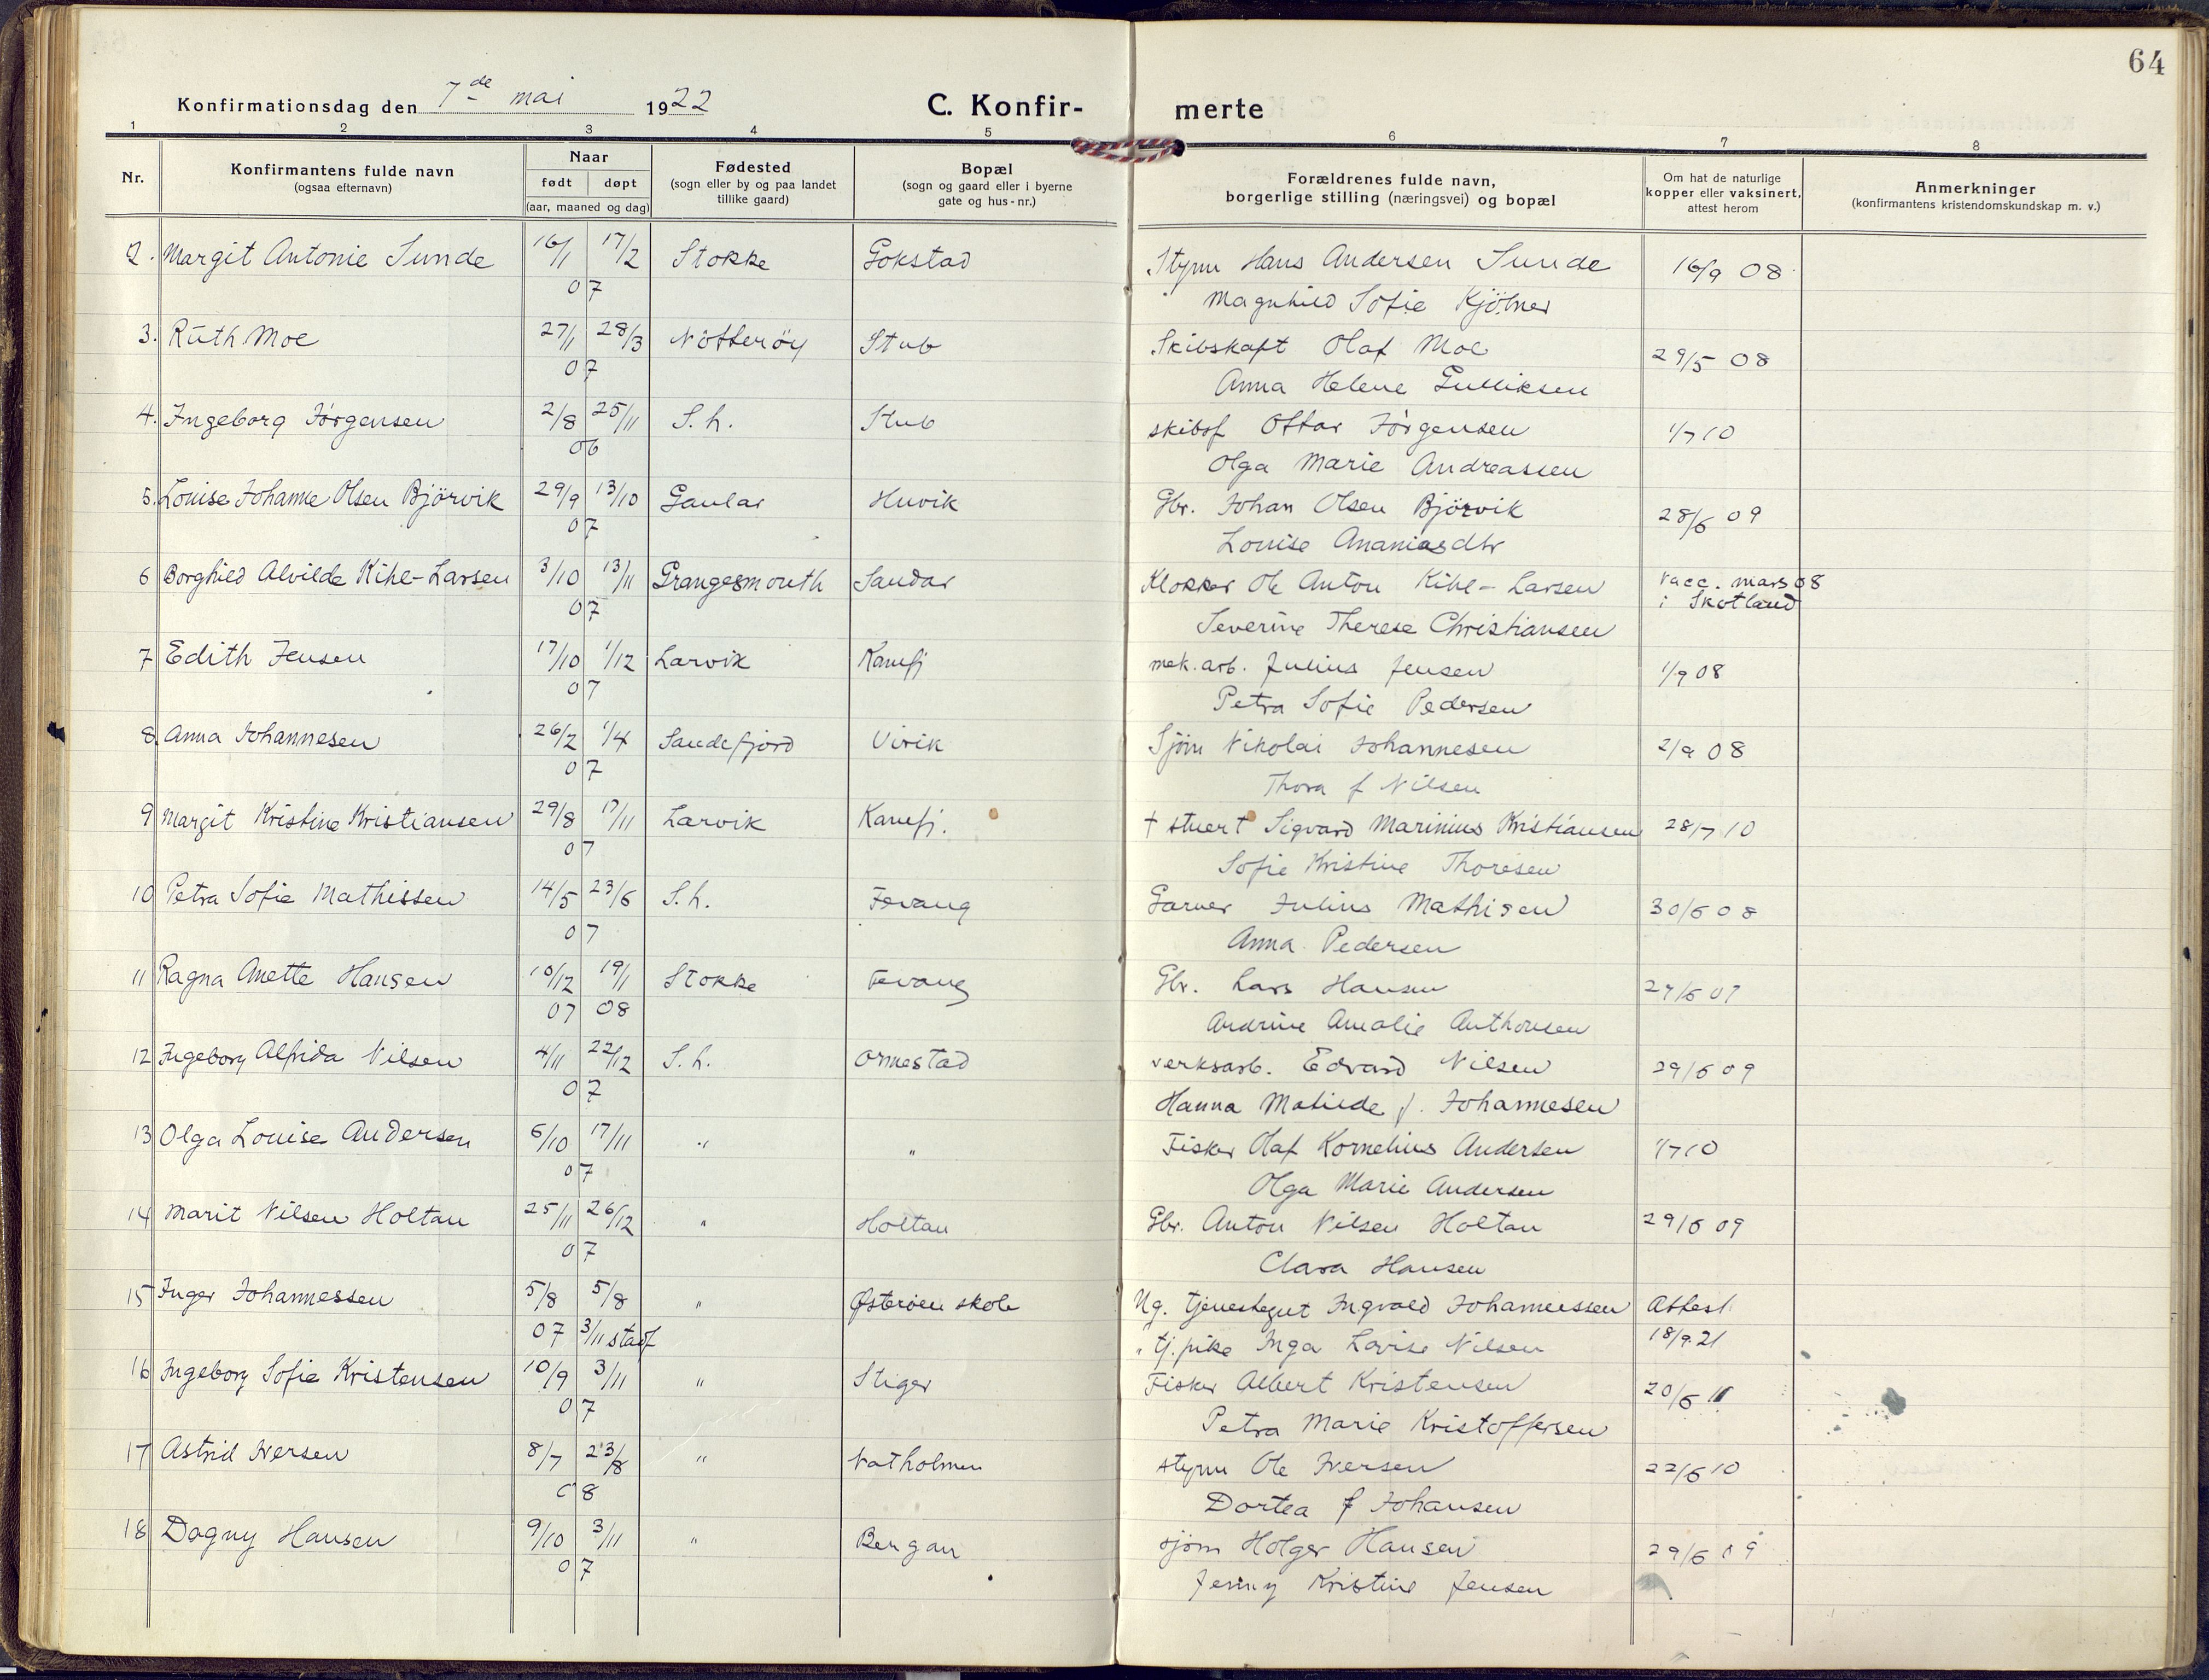 64
Konfirmationsdag den 7de mai 1922 C. Konfir- merte
1 2 3 4 5 6 7 8
Nr. Konfirmantens fulde navn (ogsaa efternavn) Naar født døpt (aar, maaned og dag) Fødested (sogn eller by og paa landet tillike gaard) Bopæl (sogn og gaard eller i byerne gate og hus-nr.) Forældrenes fulde navn, borgerlige stilling (næringsvei) og bopæl Om hat de naturlige kopper eller vaksinert, attest herom Anmerkninger (konfirmantens kristendomskundskap m. v.)
2. Margit Antonie Sunde 16/1 17/2 Stokke Gokstad Styrm Hans Andersen Sunde 16/9 08
07 Magnhild Sofie Kjölner
3. Ruth Moe 27/1 28/3 Nötteröy Stub Skibskapt Olaf Moe 29/5 08
07 Anna Helene Gulliksen
4. Ingeborg Jörgensen 2/8 25/11 S. h. Stub skibsf Ottar Jörgensen 1/7 10
06 Olga Marie Andreassen
5. Louise Johanne Olsen Björvik 29/9 13/10 Gaular Huvik Gbr. Johan Olsen Björvik 28/6 09
07 Louise Ananiasdtr
6 Borghild Alvilde Kihl-Larsen 3/10 13/11 Grangesmouth Sandar Klokker Ole Anton Kihl-Larsen vacc. mars 08
i Skotland
07 Severine Therese Christiansen
7 Edith Jensen 17/10 1/12 Larvik Kamfj mek. arb. Julius Jensen 1/9 08
07 Petra Sofie Pedersen
8. Anna Johannesen 26/2 1/4 Sandefjord Virik Sjöm Nikolai Johannesen 2/9 08
07 Thora f Nilsen
9 Margit Kristine Kristiansen 29/8 17/11 Larvik Kamfj. † stuert Sigvard Marinius Kristiansen 28/7 10
07 Sofie Kristine Thoresen
10 Petra Sofie Mathissen 14/5 23/6 S. h. Fevang Garver Julius Mathisen 30/6 08
07 Anna Pedersen
11 Ragna Anette Hansen 10/12 19/1 Stokke Fevang Gbr. Lars Hansen 27/6 07
07 08 Andrine Amalie Anthonsen
12 Ingeborg Alfrida Nilsen 4/11 22/12 S. h. Ormestad verksarb. Edvard Nilsen 29/6 09
07 Hanna Matilde f. Johannesen
13 Olga Louise Andersen 6/10 17/11 " " Fisker Olaf Kornelius Andersen 1/7 10
07 Olga Marie Andersen
14 Marit Nilsen Holtan 25/11 26/12 " Holtan Gbr. Anton Nilsen Holtan 29/6 09
07 Clara Hansen
15 Inger Johannessen 5/8 5/8 " Østeröen skole Ug. tjenestegut Ingvald Johannessen Attest
07 3/11 stadf " tj. pike Inga Lovise Nilsen 18/9.21
16 Ingeborg Sofie Kristensen 10/9 3/11 " Stiger Fisker Albert Kristensen 20/6 11
07 Petra Marie Kristoffersen
17 Astrid Iversen 8/7 23/8 " Natholmen styrm Ole Iversen 22/6 10
08 Dortea f Johansen
18 Dagny Hansen 9/10 3/11 " Bergan sjöm Holger Hansen 29/6 09
07 Jenny Kristine Jensen